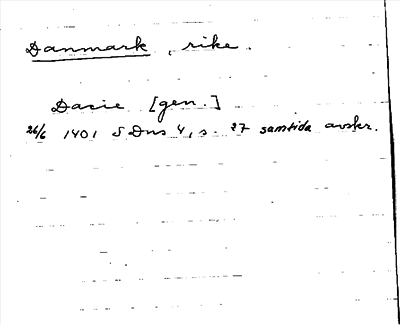 Danmark, rike.
Dacie [gen.]
26/6 1401 SDns 4, s. 27 samtida avskr.